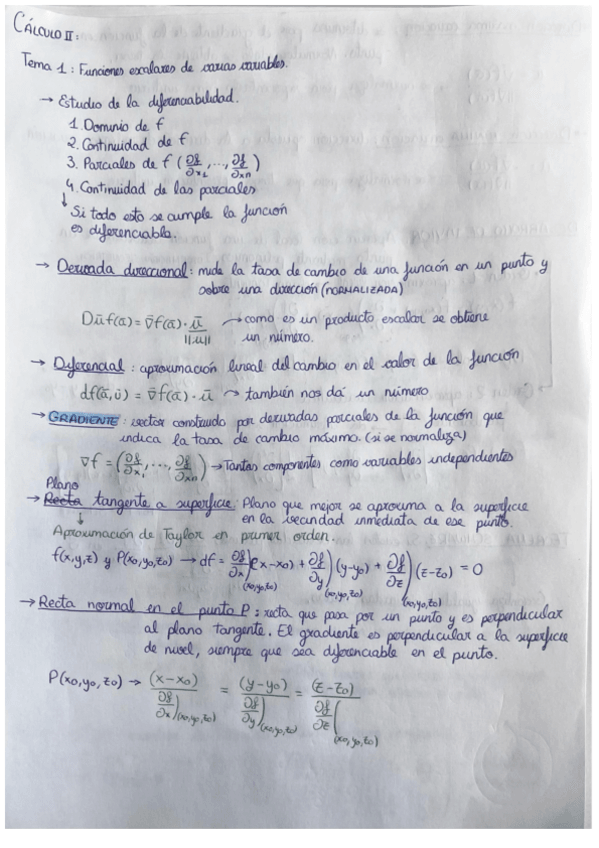 CÁLCULO II:
Tema 1: Funciones escalares de varias variables.
→ Estudio de la diferenciabilidad.
1. Dominio de f
2. Continuidad de f
3. Parciales de f (∂f/∂x₁, ..., ∂f/∂xn)
4. Continuidad de las parciales
↓ Si todo esto se cumple la función
es diferenciable.
→ Derivada direccional: mide la tasa de cambio de una función en un punto y
sobre una dirección (NORMALIZADA)
Dūf(ā) = ∇̄f(ā) · ū/||u|| → como es un producto escalar se obtiene
un número.
→ Diferencial: aproximación lineal del cambio en el valor de la función
df(ā, ū) = ∇̄f(ā) · ū → también nos da un número
→ GRADIENTE: vector construido por derivadas parciales de la función que
indica la tasa de cambio máximo. (si se normaliza)
∇f = (∂f/∂x₁, ..., ∂f/∂xn) → Tantas componentes como variables independientes
Plano
→ Recta tangente a superficie: Plano que mejor se aproxima a la superficie
en la vecindad inmediata de ese punto.
↓ Aproximación de Taylor en primer orden.
f(x,y,z) y P(x₀,y₀,z₀) → df = ∂f/∂x)(x₀,y₀,z₀) (x-x₀) + ∂f/∂y)(x₀,y₀,z₀) (y-y₀) + ∂f/∂z)(x₀,y₀,z₀) (z-z₀) = 0
→ Recta normal en el punto P: recta que pasa por un punto y es perpendicular
al plano tangente. El gradiente es perpendicular a la superficie
de nivel, siempre que sea diferenciable en el punto.
P(x₀,y₀,z₀) → (x-x₀)/∂f/∂x|(x₀,y₀,z₀) = (y-y₀)/∂f/∂y|(x₀,y₀,z₀) = (z-z₀)/∂f/∂z|(x₀,y₀,z₀)